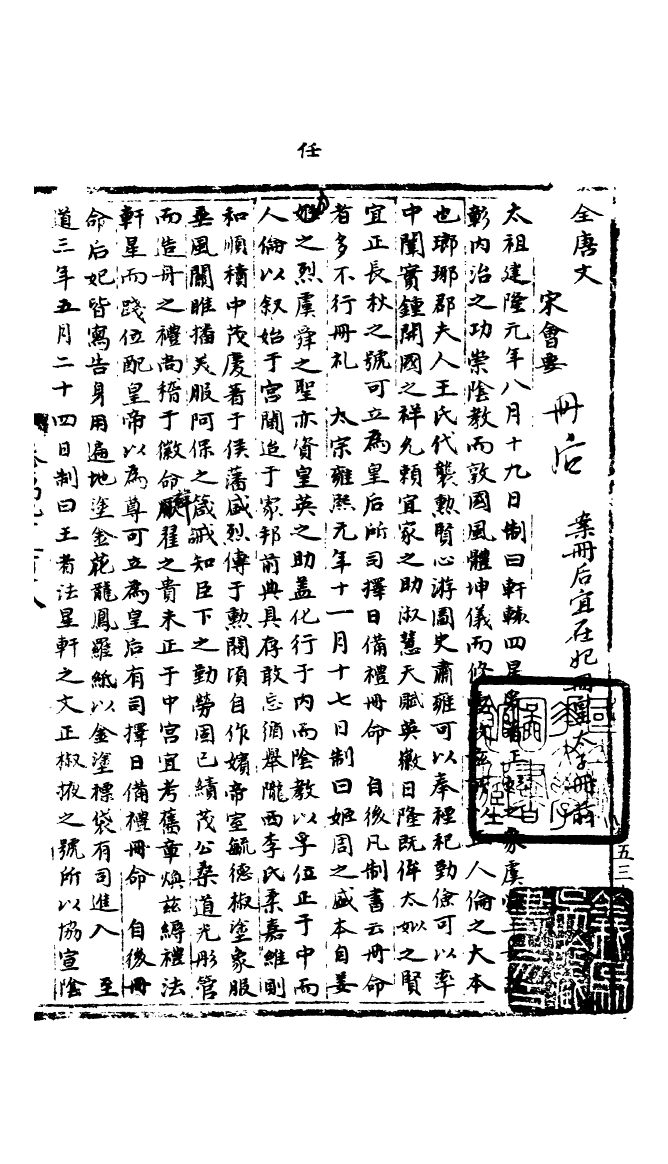 任
全唐文
宋會要
冊后
案冊后宜在妃冊皇太子冊前
太祖建隆元年八月十九日制曰軒轅四星
彰內治之功崇陰教而敦國風體坤儀而修人倫之大本
也瑯琊郡夫人王氏代襲勲賢心游圖史肅雍可以奉禋祀勤儉可以率
中闈實鍾開國之祥允賴宜家之助淑慧天賦英徽日隆既侔太姒之賢
宜正長秋之號可立為皇后所司擇日備禮冊命 自後凡制書云冊命
者多不行冊礼 太宗雍熙元年十一月十七日制曰姬周之盛本自姜
姬之烈虞舜之聖亦資皇英之助蓋化行于內而陰教以孚位正于中而
人倫以叙始于宮闈造于家邦前典具存敢忘循舉隴西李氏柔嘉維則
和順積中茂慶著于侯藩咸烈傳于勲閥頃自作嬪帝室毓德椒塗象服
垂風關雎播美服阿保之箴誡知臣下之勤勞固已績茂公桑道光彤管
而造舟之禮尚稽于徽命翟之貴未正于中宮宜考舊章煥茲縟禮法
軒星而踐位配皇帝以為尊可立為皇后有司擇日備禮冊命 自後冊
命后妃皆寫告身用遍地塗金花龍鳳羅紙以金塗標袋有司進入 至
道三年五月二十四日制曰王者法星軒之文正椒掖之號所以協宣陰
五三